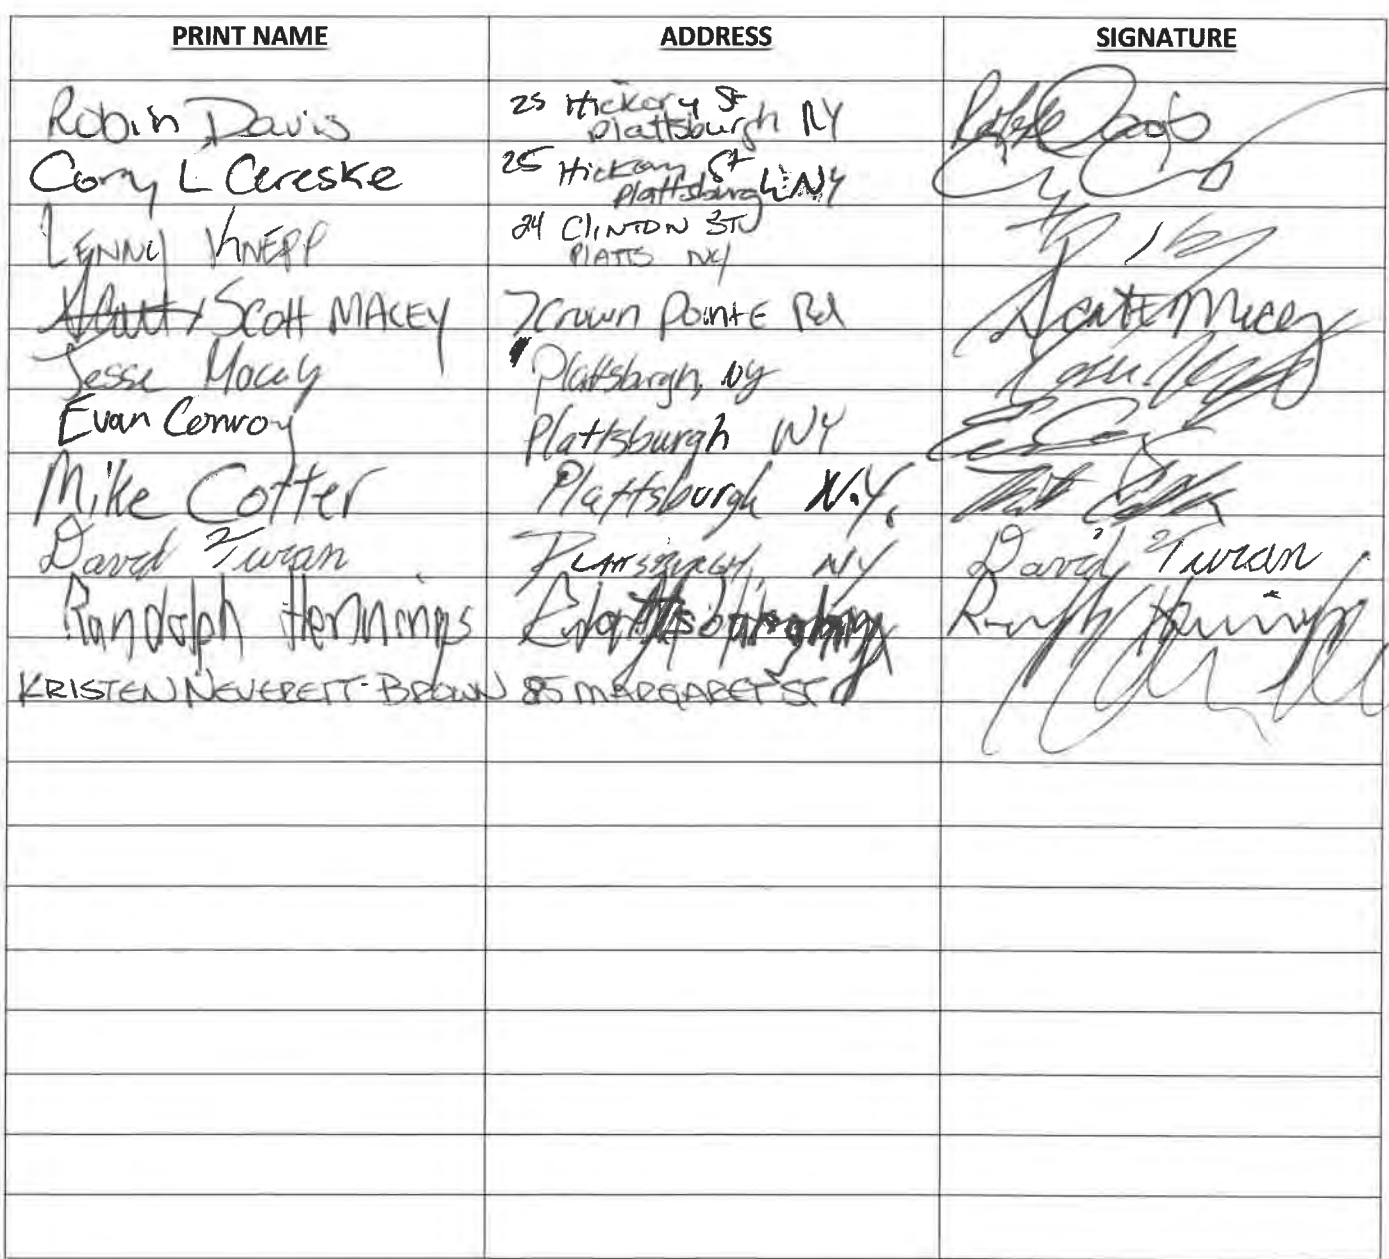 PRINT NAME ADDRESS SIGNATURE
Robin Davis 25 Hickory St
Plattsburgh NY
Cory L Cereske 25 Hickory St
Plattsburgh NY
LENNY KNEPP 24 CLINTON ST
PLATTS NY
Scott MACEY 7 Crown Pointe Rd Scott Macey
Jesse Macey Plattsburgh, NY
Evan Conroy Plattsburgh NY
Mike Cotter Plattsburgh N.Y.
David Turan PLATTSBURGH, NY David Turan
Randolph Hennings
KRISTEN NEVERETT-BROWN 85 MARGARET ST